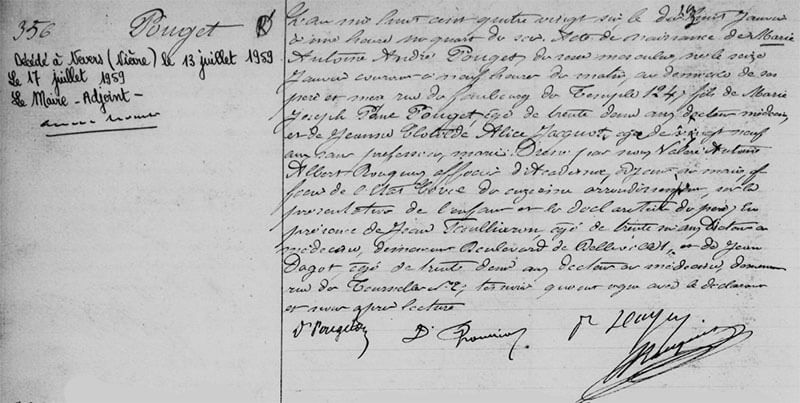 356 Pouget
Décédé à Nevers (Nièvre) le 13 juillet 1959
Le 17 juillet 1959
Le Maire - Adjoint -
L'an mil huit cent quatre vingt six le dix huit Janvier
à une heure un quart du soir. Acte de naissance de Marie
Antoine André Pouget, du sexe masculin, né le seize
Janvier courant à neuf heures du matin au domicile de ses
père et mère rue du faubourg du Temple 124; fils de Marie
Joseph Paul Pouget, âgé de trente deux ans, docteur médecin
et de Jeanne Clotilde Alice Jacquot, âgée de vingt neuf
ans sans profession, mariés. Dressé par nous Valère Antoine
Albert officier d'Académie, adjoint au maire,
de l'Etat Civil du onzième arrondissement, sur la
présentation de l'enfant et la déclaration du père; en
présence de Jean âgé de trente ans, Docteur en
médecine, demeurant Boulevard de Belleville, et de Jean
Dagot, âgé de trente deux ans, docteur en médecine, demeurant
rue de témoins qui ont signé avec le déclarant
et nous après lecture
Dr Pouget Dr